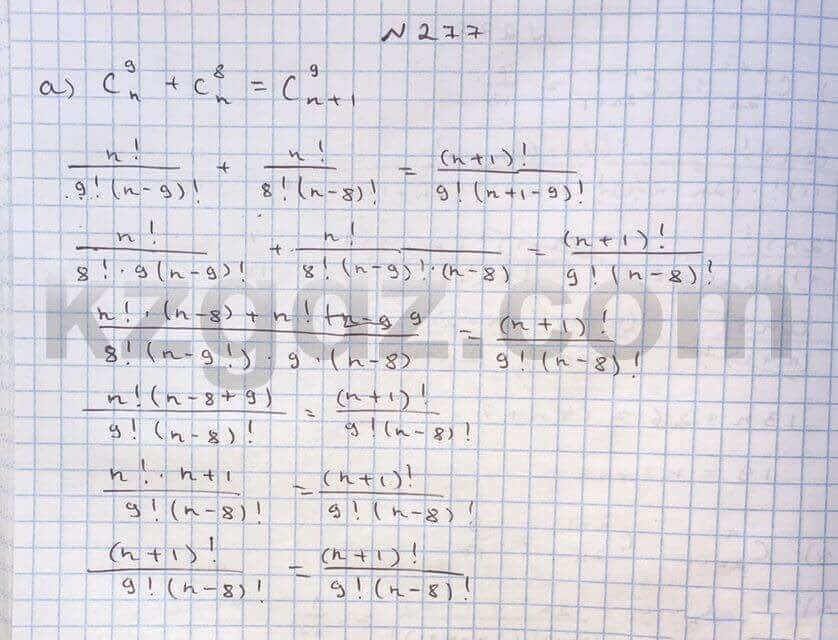 N 277
а) C_n^9 + C_n^8 = C_{n+1}^9
n! / 9!(n-9)! + n! / 8!(n-8)! = (n+1)! / 9!(n+1-9)!
n! / 8!·9(n-9)! + n! / 8!(n-9)!·(n-8) = (n+1)! / 9!(n-8)!
n!·(n-8) + n! 9 / 8!(n-9!)·9·(n-8) = (n+1)! / 9!(n-8)!
n!(n-8+9) / 9!(n-8)! = (n+1)! / 9!(n-8)!
n!·n+1 / 9!(n-8)! = (n+1)! / 9!(n-8)!
(n+1)! / 9!(n-8)! = (n+1)! / 9!(n-8)!
kzgdz.com